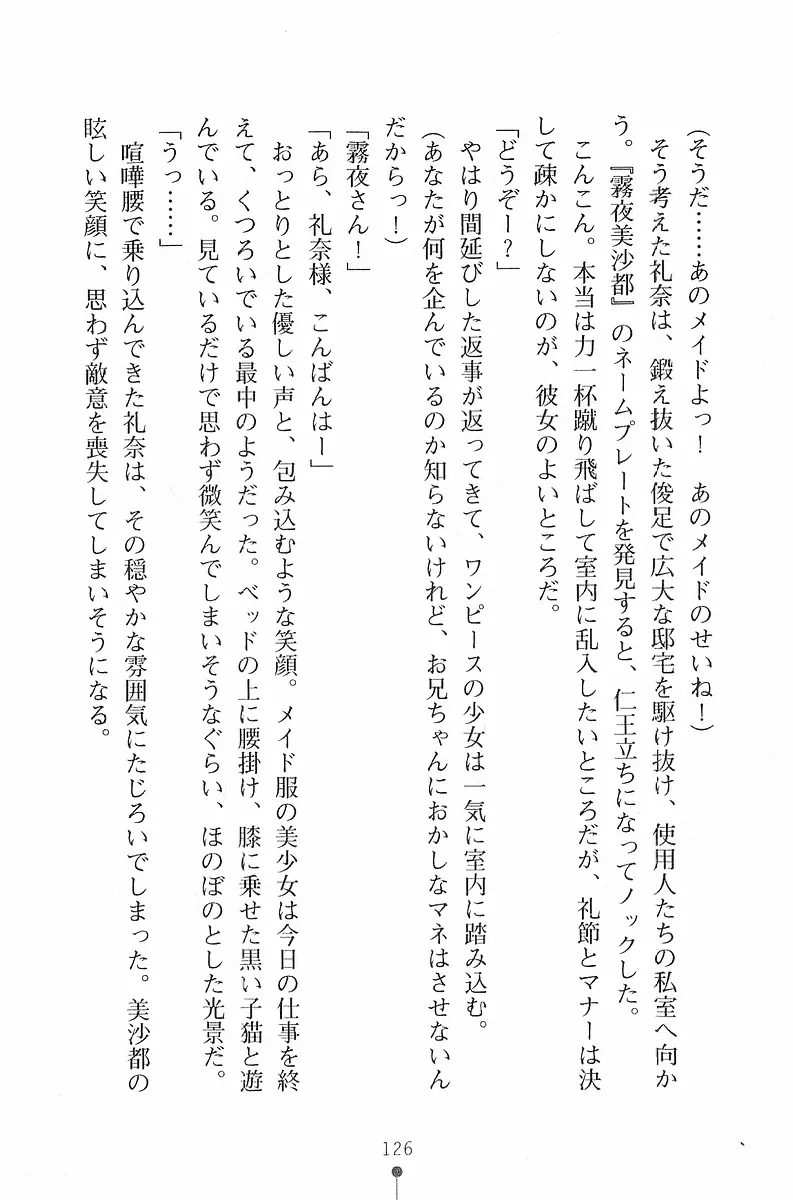 （そうだ……あのメイドよっ！　あのメイドのせいね！）
　そう考えた礼奈は、鍛え抜いた俊足で広大な邸宅を駆け抜け、使用人たちの私室へ向か
う。『霧夜美沙都』のネームプレートを発見すると、仁王立ちになってノックした。
　こんこん。本当は力一杯蹴り飛ばして室内に乱入したいところだが、礼節とマナーは決
して疎かにしないのが、彼女のよいところだ。
「どうぞー？」
　やはり間延びした返事が返ってきて、ワンピースの少女は一気に室内に踏み込む。
（あなたが何を企んでいるのか知らないけれど、お兄ちゃんにおかしなマネはさせないん
だからっ！）
「霧夜さん！」
「あら、礼奈様、こんばんはー」
　おっとりとした優しい声と、包み込むような笑顔。メイド服の美少女は今日の仕事を終
えて、くつろいでいる最中のようだった。ベッドの上に腰掛け、膝に乗せた黒い子猫と遊
んでいる。見ているだけで思わず微笑んでしまいそうなぐらい、ほのぼのとした光景だ。
「うっ……」
　喧嘩腰で乗り込んできた礼奈は、その穏やかな雰囲気にたじろいでしまった。美沙都の
眩しい笑顔に、思わず敵意を喪失してしまいそうになる。
126